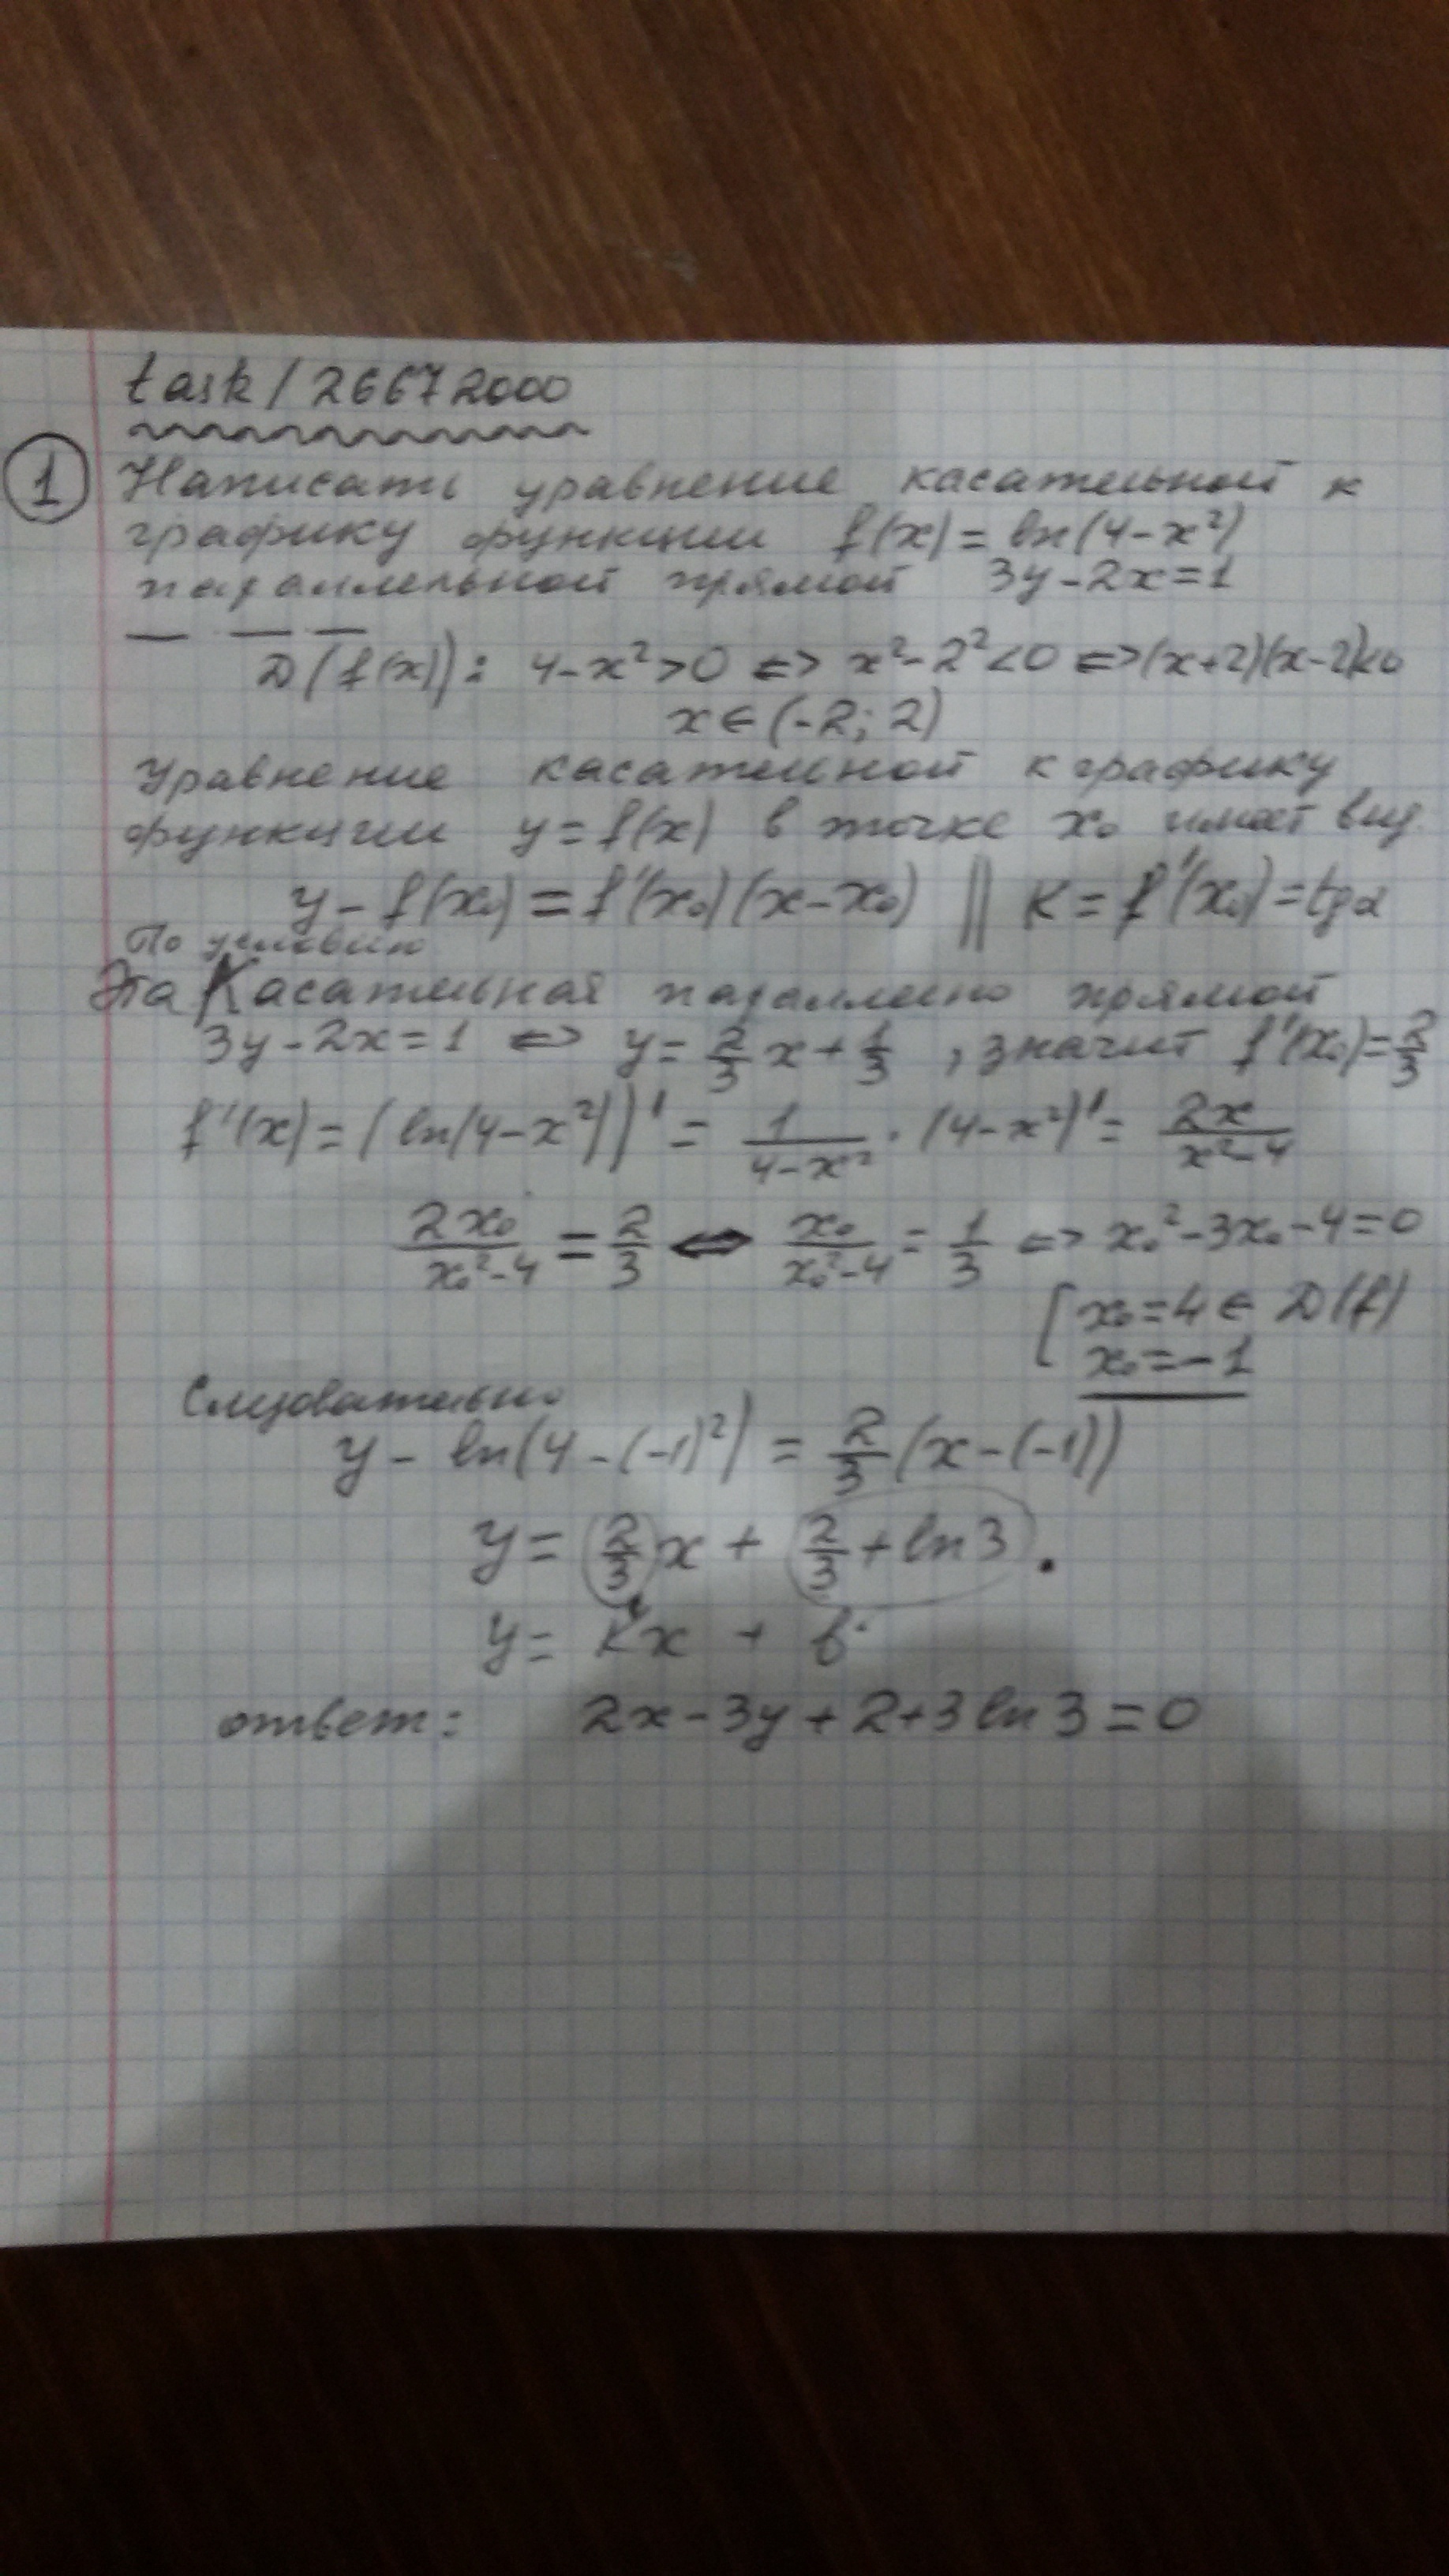 task/26672000
① Написать уравнение касательной к
графику функции f(x) = ln(4-x²)
параллельной прямой 3y-2x=1
D(f(x)): 4-x²>0 <=> x²-2²<0 <=> (x+2)(x-2)<0
x∈(-2; 2)
Уравнение касательной к графику
функции y=f(x) в точке x₀ имеет вид
y-f(x₀)=f'(x₀)(x-x₀) || K=f'(x₀)=tgα
По условию
Эта Касательная параллельно прямой
3y-2x=1 <=> y=2/3 x+1/3, значит f'(x₀)=2/3
f'(x)=(ln(4-x²))'= 1/(4-x²) · (4-x²)'= 2x/(x²-4)
2x₀/(x₀²-4) = 2/3 <=> x₀/(x₀²-4) = 1/3 <=> x₀²-3x₀-4=0
[x₀=4 ∈ D(f)
x₀=-1
Следовательно
y- ln(4-(-1)²) = 2/3 (x-(-1))
y= 2/3 x + 2/3+ln3.
y= Kx + b
ответ: 2x-3y+2+3ln3=0